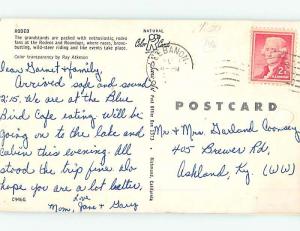 RODEO
The grandstands are packed with enthusiastic rodeo
fans at the Rodeos and Roundups, where races, bronc-
busting, wild-steer riding and the events take place.
Color transparency by Ray Atkeson
NATURAL
Color Card
Dear Garnet & family,
Arrived safe and sound
2:15. We are at the Blue
Bird Cafe eating will be
going on to the lake and
cabin this evening. All
stood the trip fine. Do
hope you are a lot better.
Love
Mom, Jane & Gary
C9465
LEBANON
2¢
POSTCARD
Mr & Mrs. Garland
405 Brewer Rd,
Ashland, Ky. (WW)